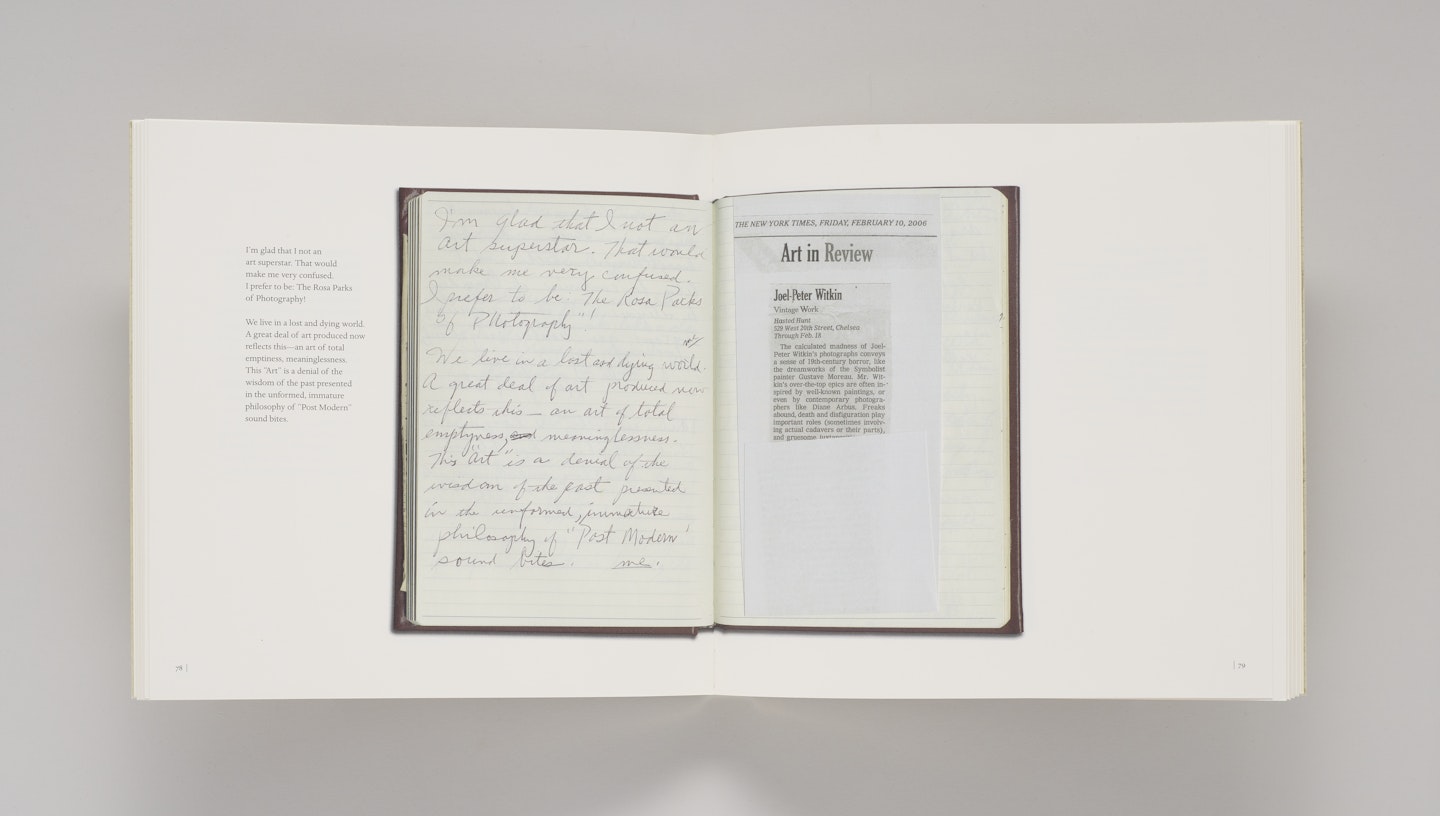 I'm glad that I not an
art superstar. That would
make me very confused.
I prefer to be: The Rosa Parks
of Photography!
We live in a lost and dying world.
A great deal of art produced now
reflects this—an art of total
emptiness, meaninglessness.
This "Art" is a denial of the
wisdom of the past presented
in the unformed, immature
philosophy of "Post Modern"
sound bites.
78 |
I'm glad that I not an
art superstar. That would
make me very confused.
I prefer to be: The Rosa Parks
of Photography"!
We live in a lost and dying world.
A great deal of art produced now
reflects this — an art of total
emptyness, and meaninglessness.
This "Art" is a denial of the
wisdom of the past presented
in the unformed, immature
philosophy of "Post Modern"
sound bites. me.
THE NEW YORK TIMES, FRIDAY, FEBRUARY 10, 2006
Art in Review
Joel-Peter Witkin
Vintage Work
Hasted Hunt
529 West 20th Street, Chelsea
Through Feb. 18
The calculated madness of Joel-
Peter Witkin's photographs conveys
a sense of 19th-century horror, like
the dreamworks of the Symbolist
painter Gustave Moreau. Mr. Wit-
kin's over-the-top epics are often in-
spired by well-known paintings, or
even by contemporary photogra-
phers like Diane Arbus. Freaks
abound, death and disfiguration play
important roles (sometimes involv-
ing actual cadavers or their parts),
and gruesome
| 79